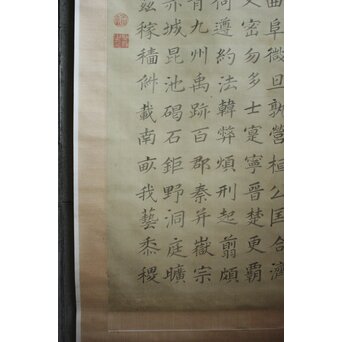 曲阜微旦孰營桓公匡合濟
乂密勿多士寔寧晉楚更霸
何遵約法韓弊煩刑起翦頗
青九州禹跡百郡秦并嶽宗
赤城昆池碣石鉅野洞庭曠
茲稼穡俶載南畝我藝黍稷